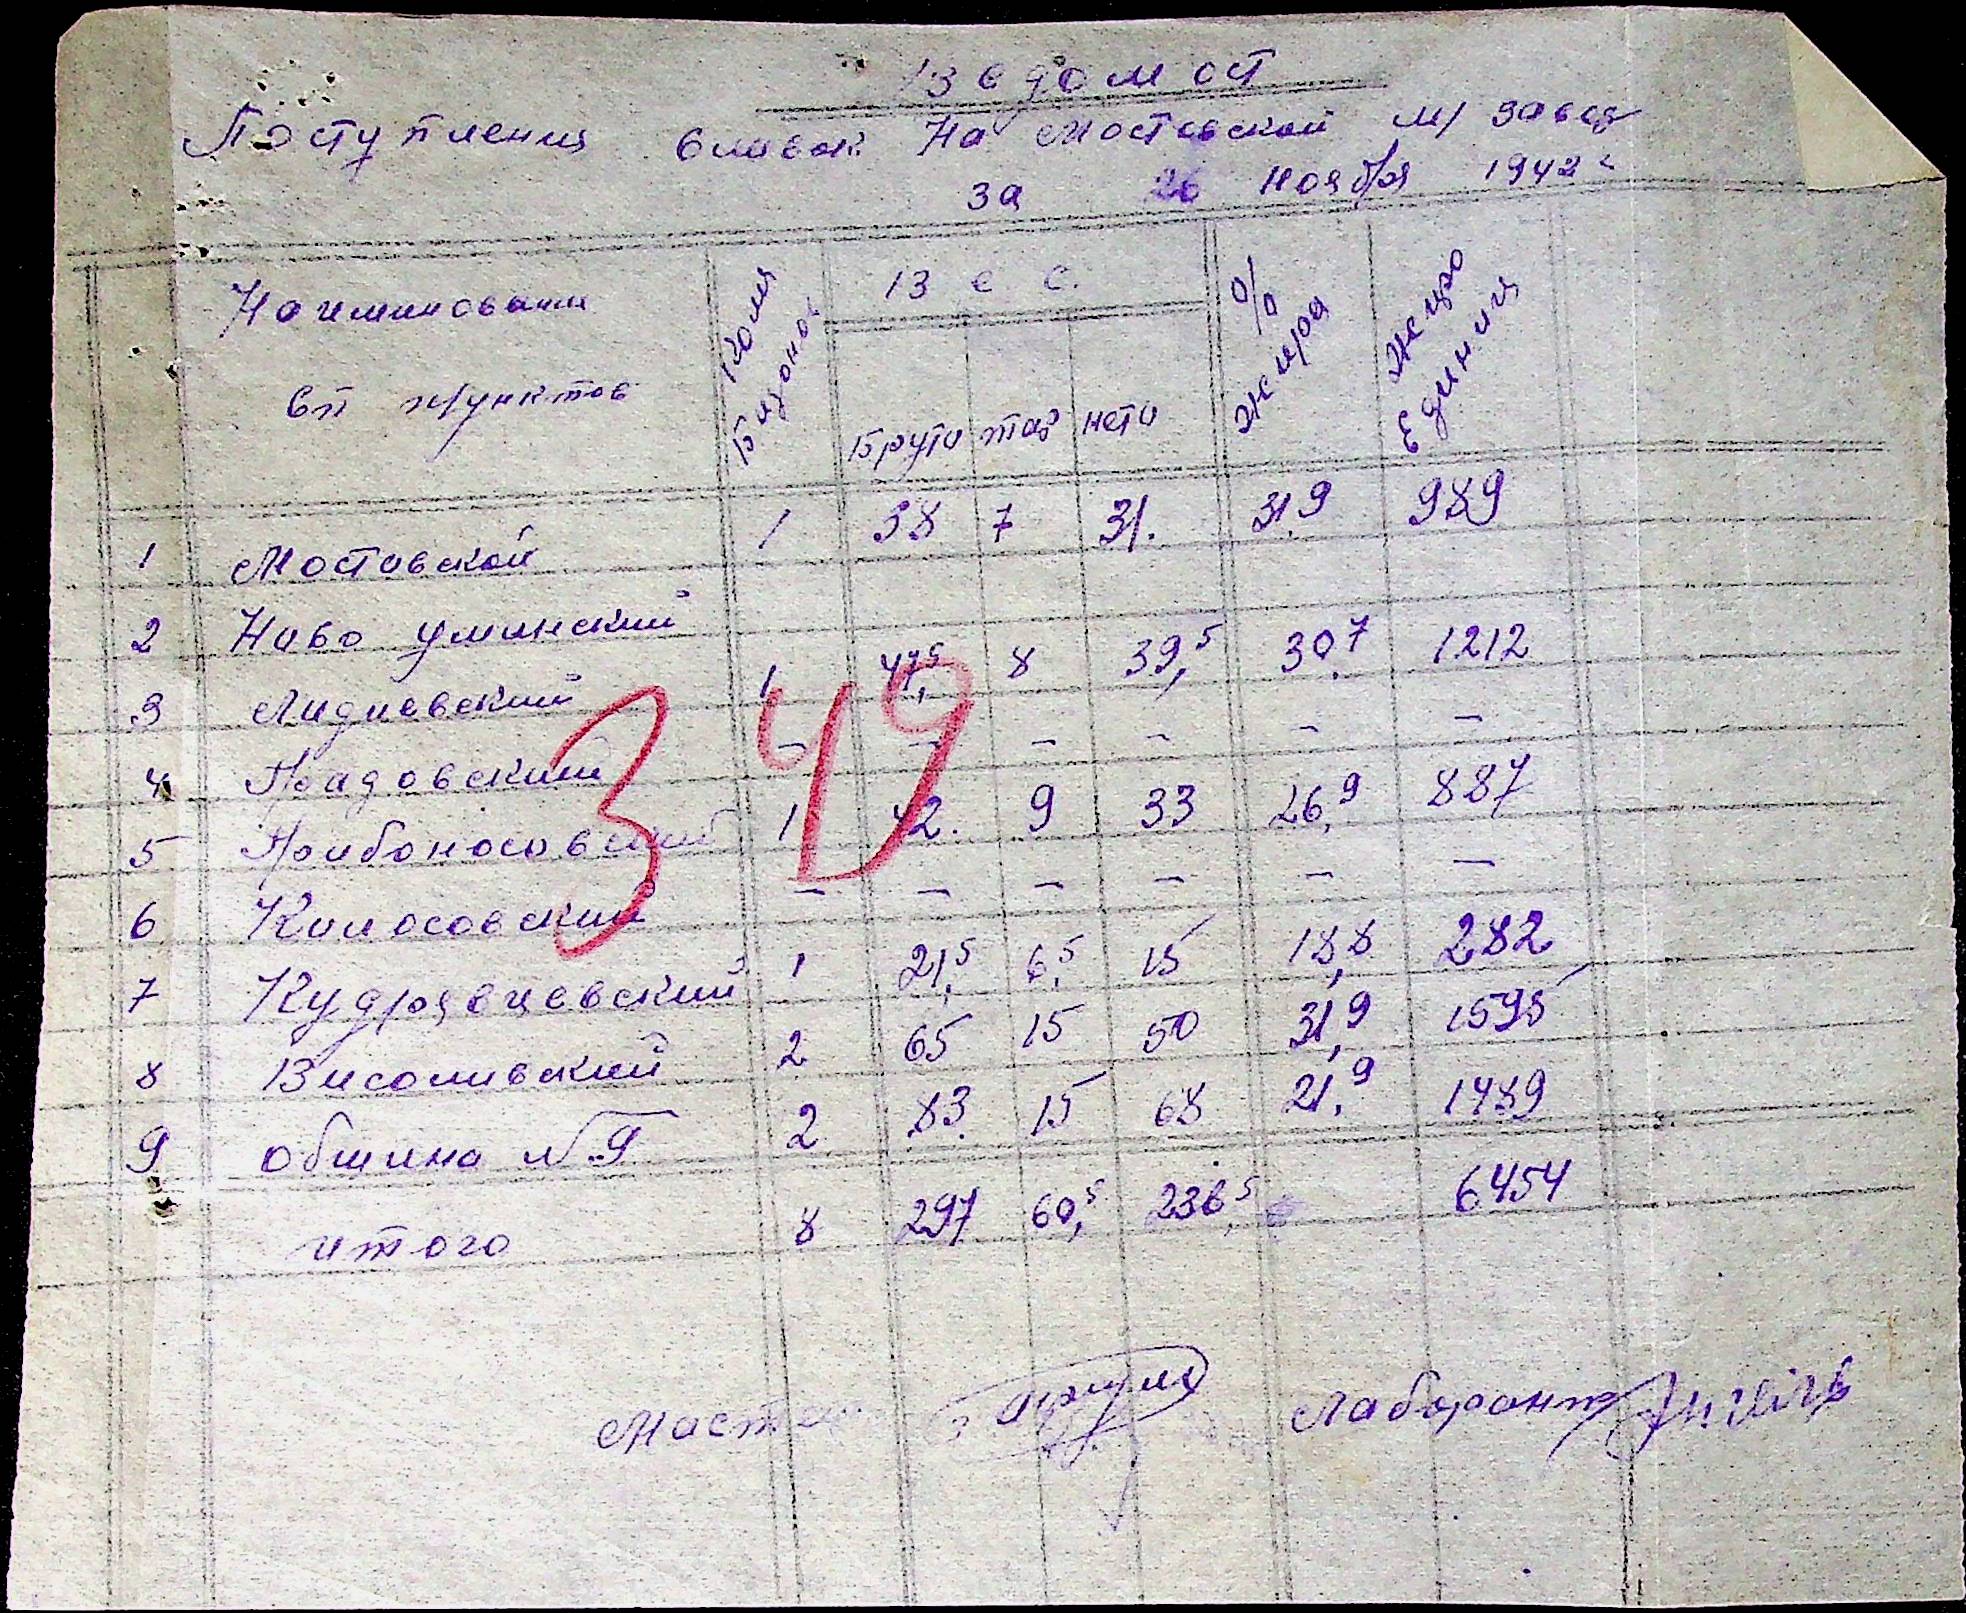 Ведомост
Поступления сливок На Мостовской м/завод
за 26 ноября 1942 г
Наиминовании сп пунктов
Колич Бидонов
Вес.
Брутто тар нето
% жира
жиро Единиц
1 Мостовской 1 38 7 31. 31.9 989
2 Ново уманский 1 47,5 8 39,5 30.7 1212
3 Лидиевский – – – – – –
4 Градовский 1 42. 9 33 26,9 887
5 Трибоносовский – – – – – –
6 Колосовский 1 21,5 6,5 15 18,8 282
7 Кудрявцевский 2 65 15 50 31,9 1595
8 Висоливский 2 83. 15 68 21.9 1489
9 община № 9
итого 8 297 60,5 236,5 6454
349
Мастер
Лаборант